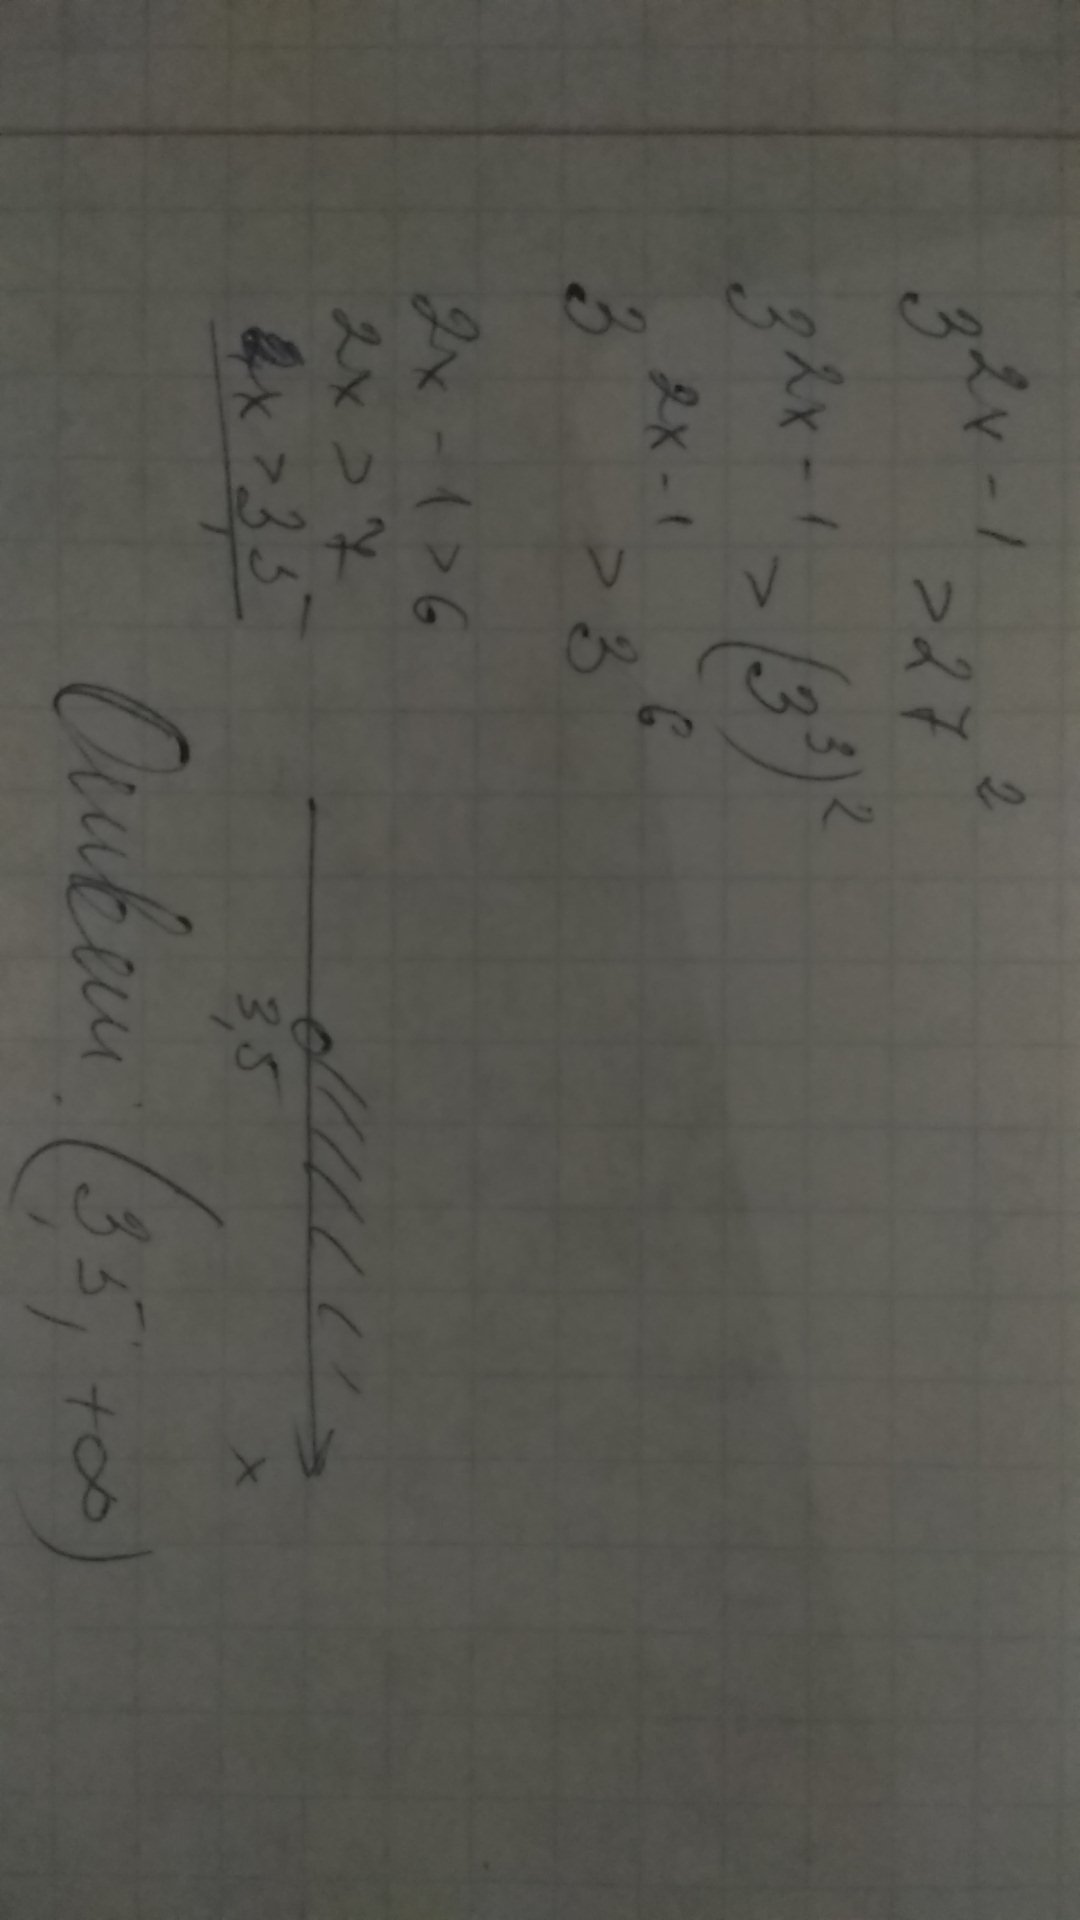 3^{2x-1} > 27^2
3^{2x-1} > (3^3)^2
3^{2x-1} > 3^6
2x - 1 > 6
2x > 7
x > 3,5
3,5 x
Ответ: (3,5; +∞)